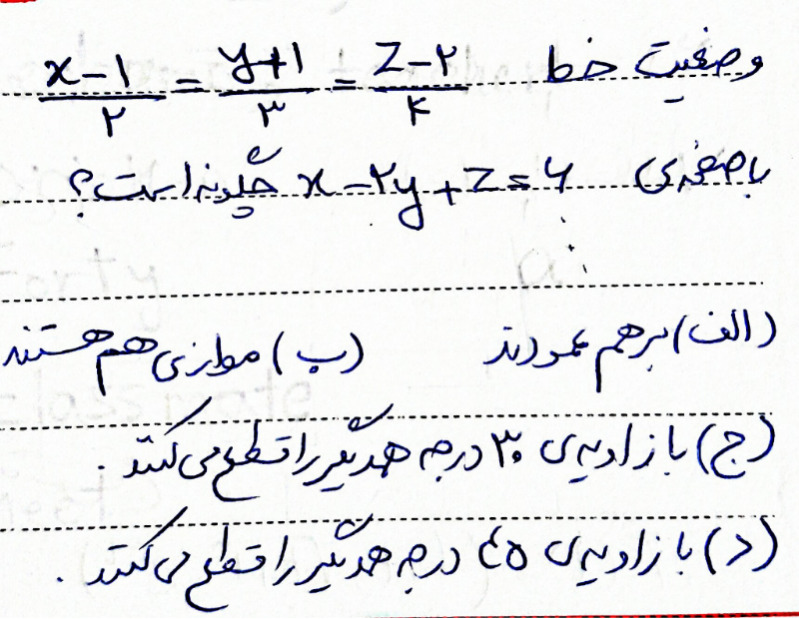 وضعیت خط (x-۱)/۲ = (y+۱)/۳ = (z-۲)/۴
با صفحه‌ی x-۲y+z=۶ چگونه است؟
الف) برهم عمودند ب) موازی هم هستند
ج) با زاویه‌ی ۳۰ درجه همدیگر را قطع می‌کنند.
د) با زاویه‌ی ۴۵ درجه همدیگر را قطع می‌کنند.